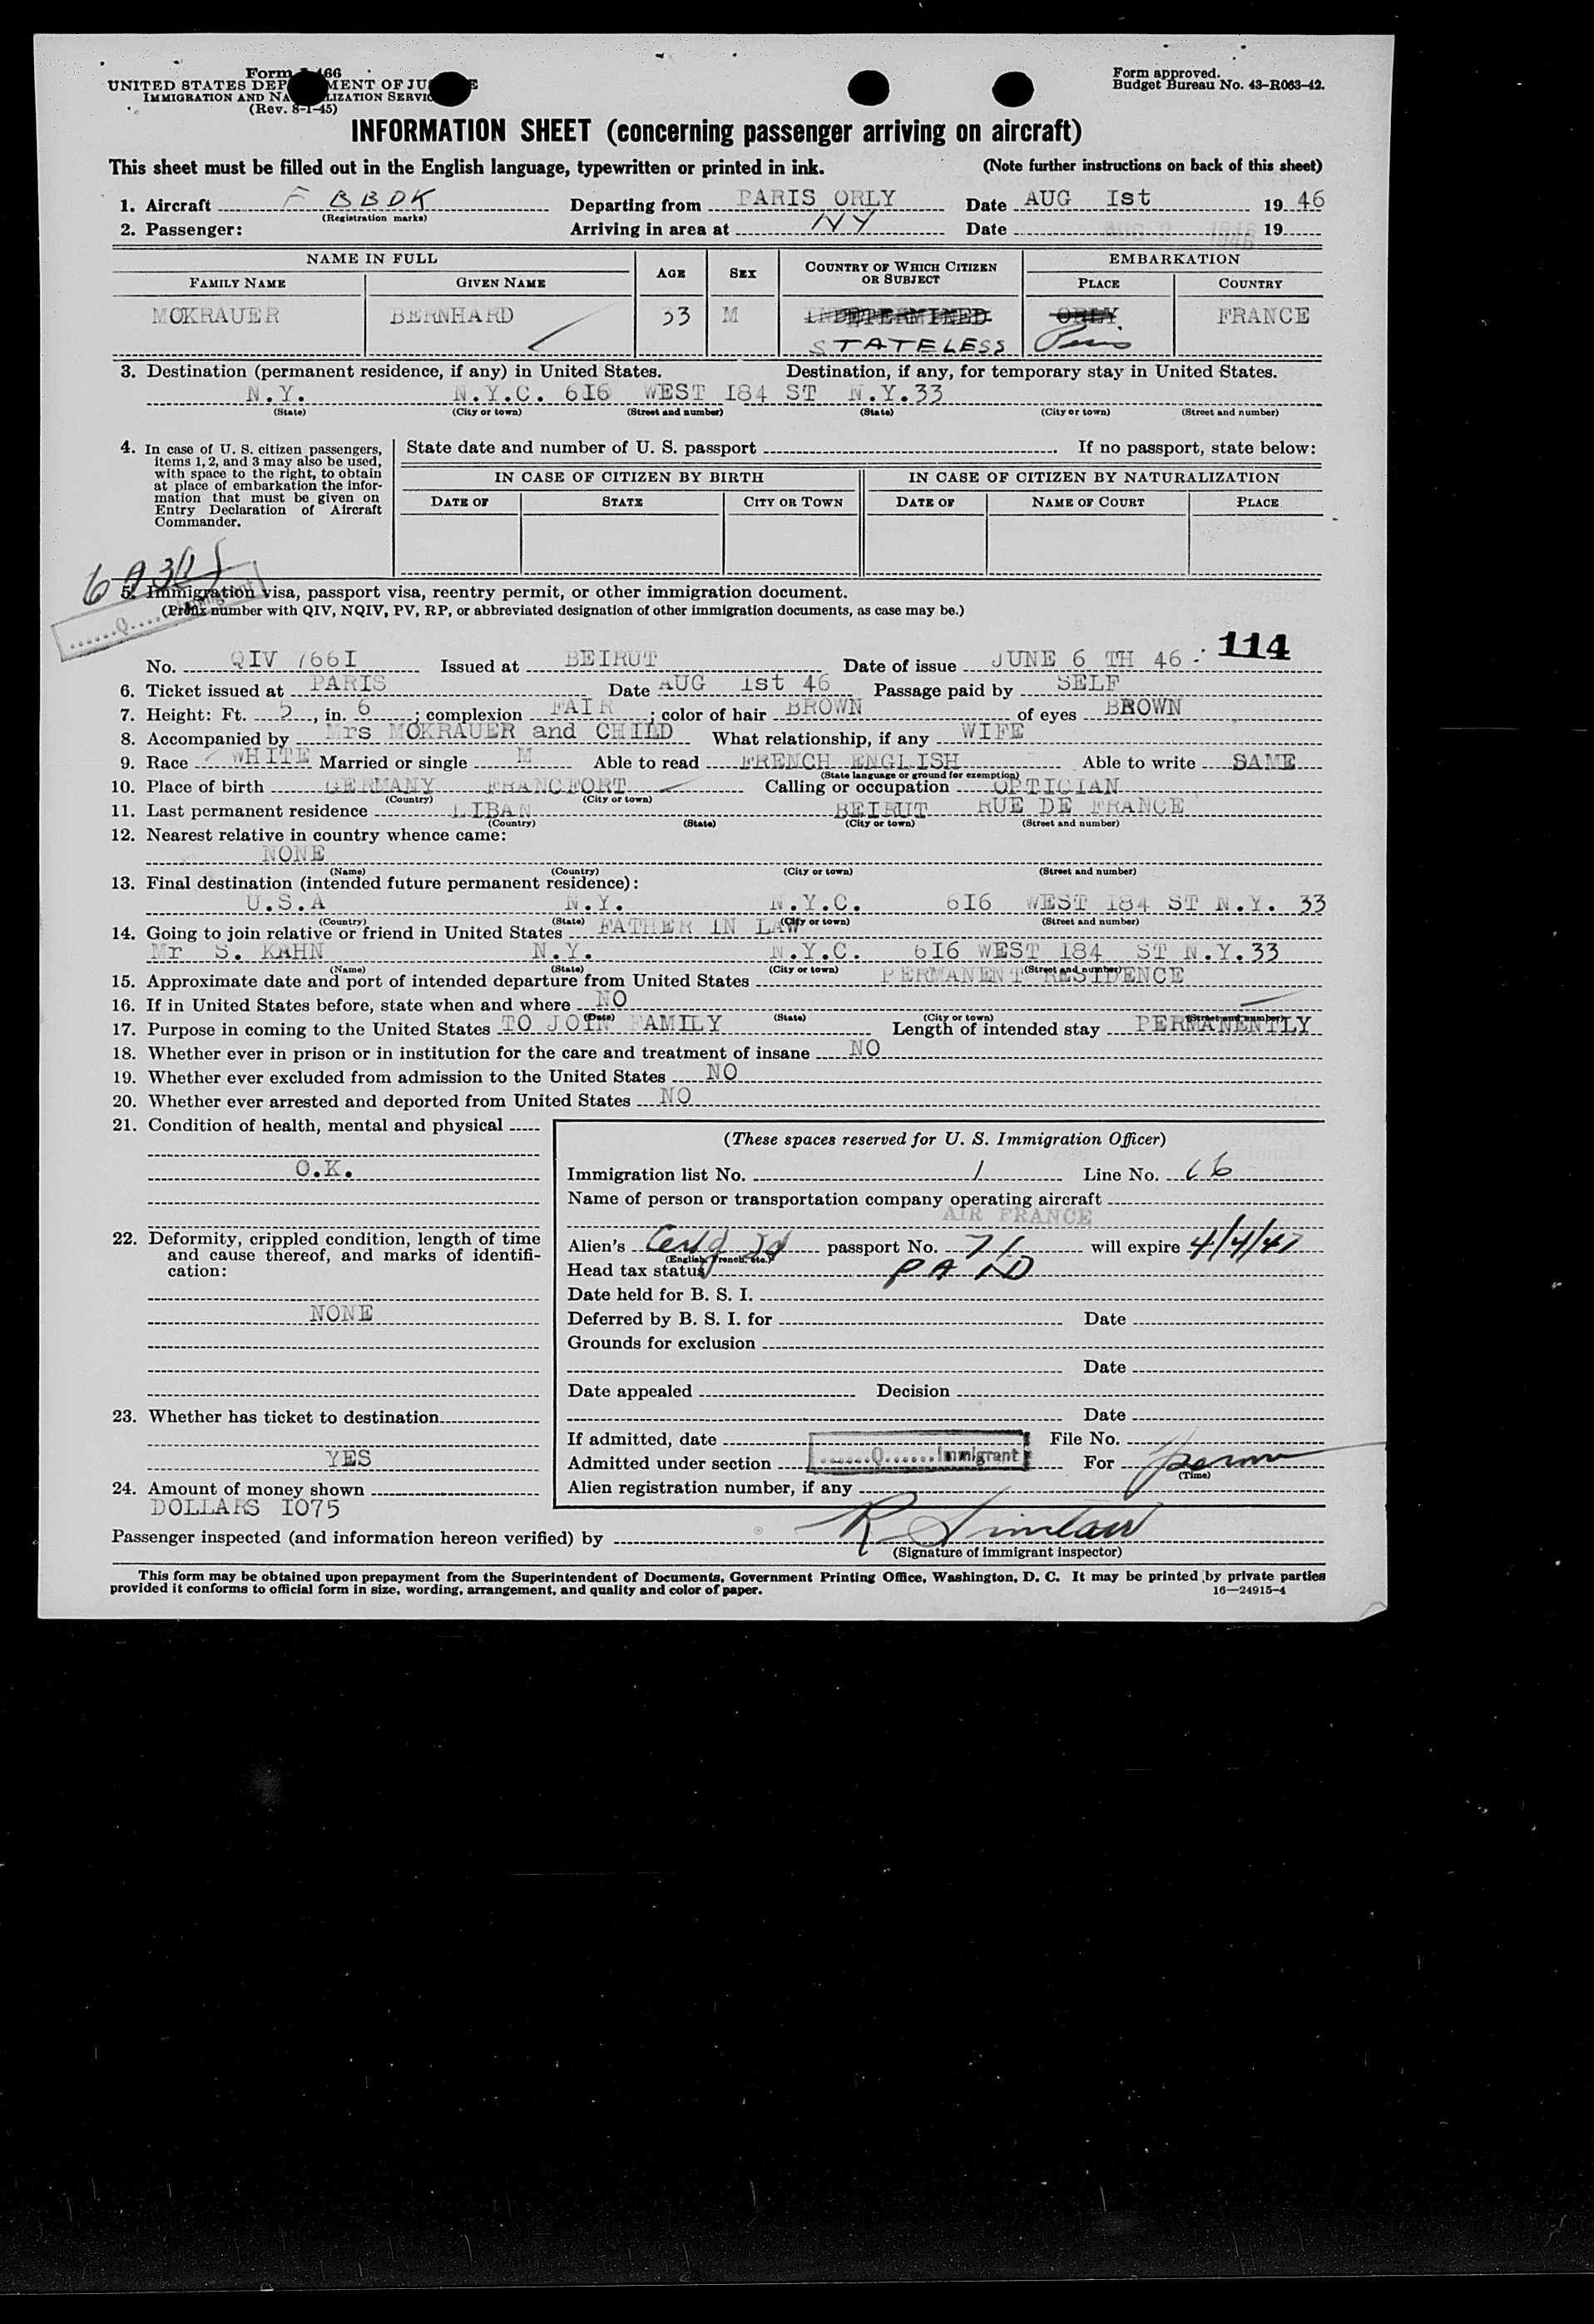 Form 466
UNITED STATES DEP MENT OF JU E
IMMIGRATION AND NA LIZATION SERVIC
(Rev. 8-1-45)
Form approved.
Budget Bureau No. 43-R063-42.
INFORMATION SHEET (concerning passenger arriving on aircraft)
This sheet must be filled out in the English language, typewritten or printed in ink. (Note further instructions on back of this sheet)
1. Aircraft F BBDK Departing from PARIS ORLY Date AUG Ist 19 46
(Registration marks)
2. Passenger: Arriving in area at NY Date 19
NAME IN FULL AGE SEX COUNTRY OF WHICH CITIZEN OR SUBJECT EMBARKATION
FAMILY NAME GIVEN NAME PLACE COUNTRY
MOKRAUER BERNHARD 33 M INDETERMINED ORLY FRANCE
STATELESS Paris
3. Destination (permanent residence, if any) in United States. Destination, if any, for temporary stay in United States.
N.Y. N.Y.C. 6I6 WEST I84 ST N.Y.33
(State) (City or town) (Street and number) (State) (City or town) (Street and number)
4. In case of U. S. citizen passengers,
items 1, 2, and 3 may also be used,
with space to the right, to obtain
at place of embarkation the infor-
mation that must be given on
Entry Declaration of Aircraft
Commander.
State date and number of U. S. passport If no passport, state below:
IN CASE OF CITIZEN BY BIRTH IN CASE OF CITIZEN BY NATURALIZATION
DATE OF STATE CITY OR TOWN DATE OF NAME OF COURT PLACE
5. Immigration visa, passport visa, reentry permit, or other immigration document.
(Prefix number with QIV, NQIV, PV, RP, or abbreviated designation of other immigration documents, as case may be.)
Q
114
No. QIV 766I Issued at BEIRUT Date of issue JUNE 6 TH 46
6. Ticket issued at PARIS Date AUG 1st 46 Passage paid by SELF
7. Height: Ft. 5, in. 6; complexion FAIR; color of hair BROWN of eyes BROWN
8. Accompanied by Mrs MOKRAUER and CHILD What relationship, if any WIFE
9. Race WHITE Married or single M Able to read FRENCH ENGLISH Able to write SAME
(State language or ground for exemption)
10. Place of birth GERMANY FRANCFORT Calling or occupation OPTICIAN
(Country) (City or town)
11. Last permanent residence LIBAN BEIRUT RUE DE FRANCE
(Country) (State) (City or town) (Street and number)
12. Nearest relative in country whence came:
NONE
(Name) (Country) (City or town) (Street and number)
13. Final destination (intended future permanent residence):
U.S.A N.Y. N.Y.C. 6I6 WEST I84 ST N.Y. 33
(Country) (State) (City or town) (Street and number)
14. Going to join relative or friend in United States FATHER IN LAW
Mr S. KAHN N.Y. N.Y.C. 6I6 WEST 184 ST N.Y.33
(Name) (State) (City or town) (Street and number)
15. Approximate date and port of intended departure from United States PERMANENT RESIDENCE
16. If in United States before, state when and where NO
(Date) (State) (City or town) (Street and number)
17. Purpose in coming to the United States TO JOIN FAMILY Length of intended stay PERMANENTLY
18. Whether ever in prison or in institution for the care and treatment of insane NO
19. Whether ever excluded from admission to the United States NO
20. Whether ever arrested and deported from United States NO
21. Condition of health, mental and physical
O.K.
22. Deformity, crippled condition, length of time
and cause thereof, and marks of identifi-
cation:
NONE
23. Whether has ticket to destination
YES
24. Amount of money shown
DOLLARS I075
(These spaces reserved for U. S. Immigration Officer)
Immigration list No. 1 Line No. 16
Name of person or transportation company operating aircraft
AIR FRANCE
Alien's passport No. 71 will expire 4/4/47
(English, French, etc.)
Head tax status PAID
Date held for B. S. I.
Deferred by B. S. I. for Date
Grounds for exclusion
Date
Date appealed Decision
Date
If admitted, date File No.
Admitted under section Q Immigrant For perm
(Time)
Alien registration number, if any
Passenger inspected (and information hereon verified) by R Sinclair
(Signature of immigrant inspector)
This form may be obtained upon prepayment from the Superintendent of Documents, Government Printing Office, Washington, D. C. It may be printed by private parties
provided it conforms to official form in size, wording, arrangement, and quality and color of paper. 16—24915-4